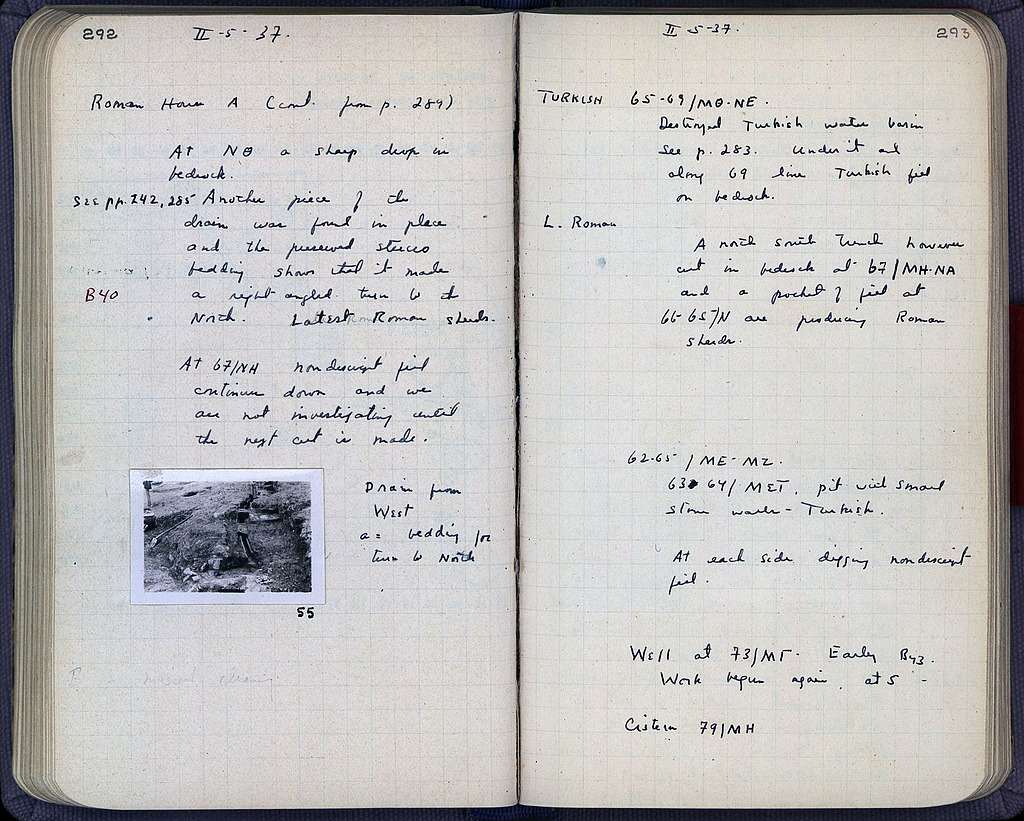 292
II-5-37.
Roman House A (cont. from p. 289)
At NΘ a sharp drop in
bedrock.
See pp. 242, 285 Another piece of the
drain was found in place
and the preserved stucco
bedding shows that it made
B40 a right angled turn to the
North. Latest Roman sherds.
At 67/NH nondescript fill
continues down and we
are not investigating until
the next cut is made.
Drain from
West
a = bedding for
turn to North
55
II-5-37.
293
TURKISH 65-69/MΘ-NE.
Destroyed Turkish water basin
See p. 283. Under it and
along 69 line Turkish fill
on bedrock.
L. Roman
A north south trench however
cut in bedrock at 67/MH-NA
and a pocket of fill at
66-65/N are producing Roman
sherds.
62-65/ME-MZ.
63 64/MET, pit with small
stone walls - Turkish.
At each side digging nondescript
fill.
Well at 73/MΓ. Early Byz.
Work begun again, at 5 -
Cistern 79/MH